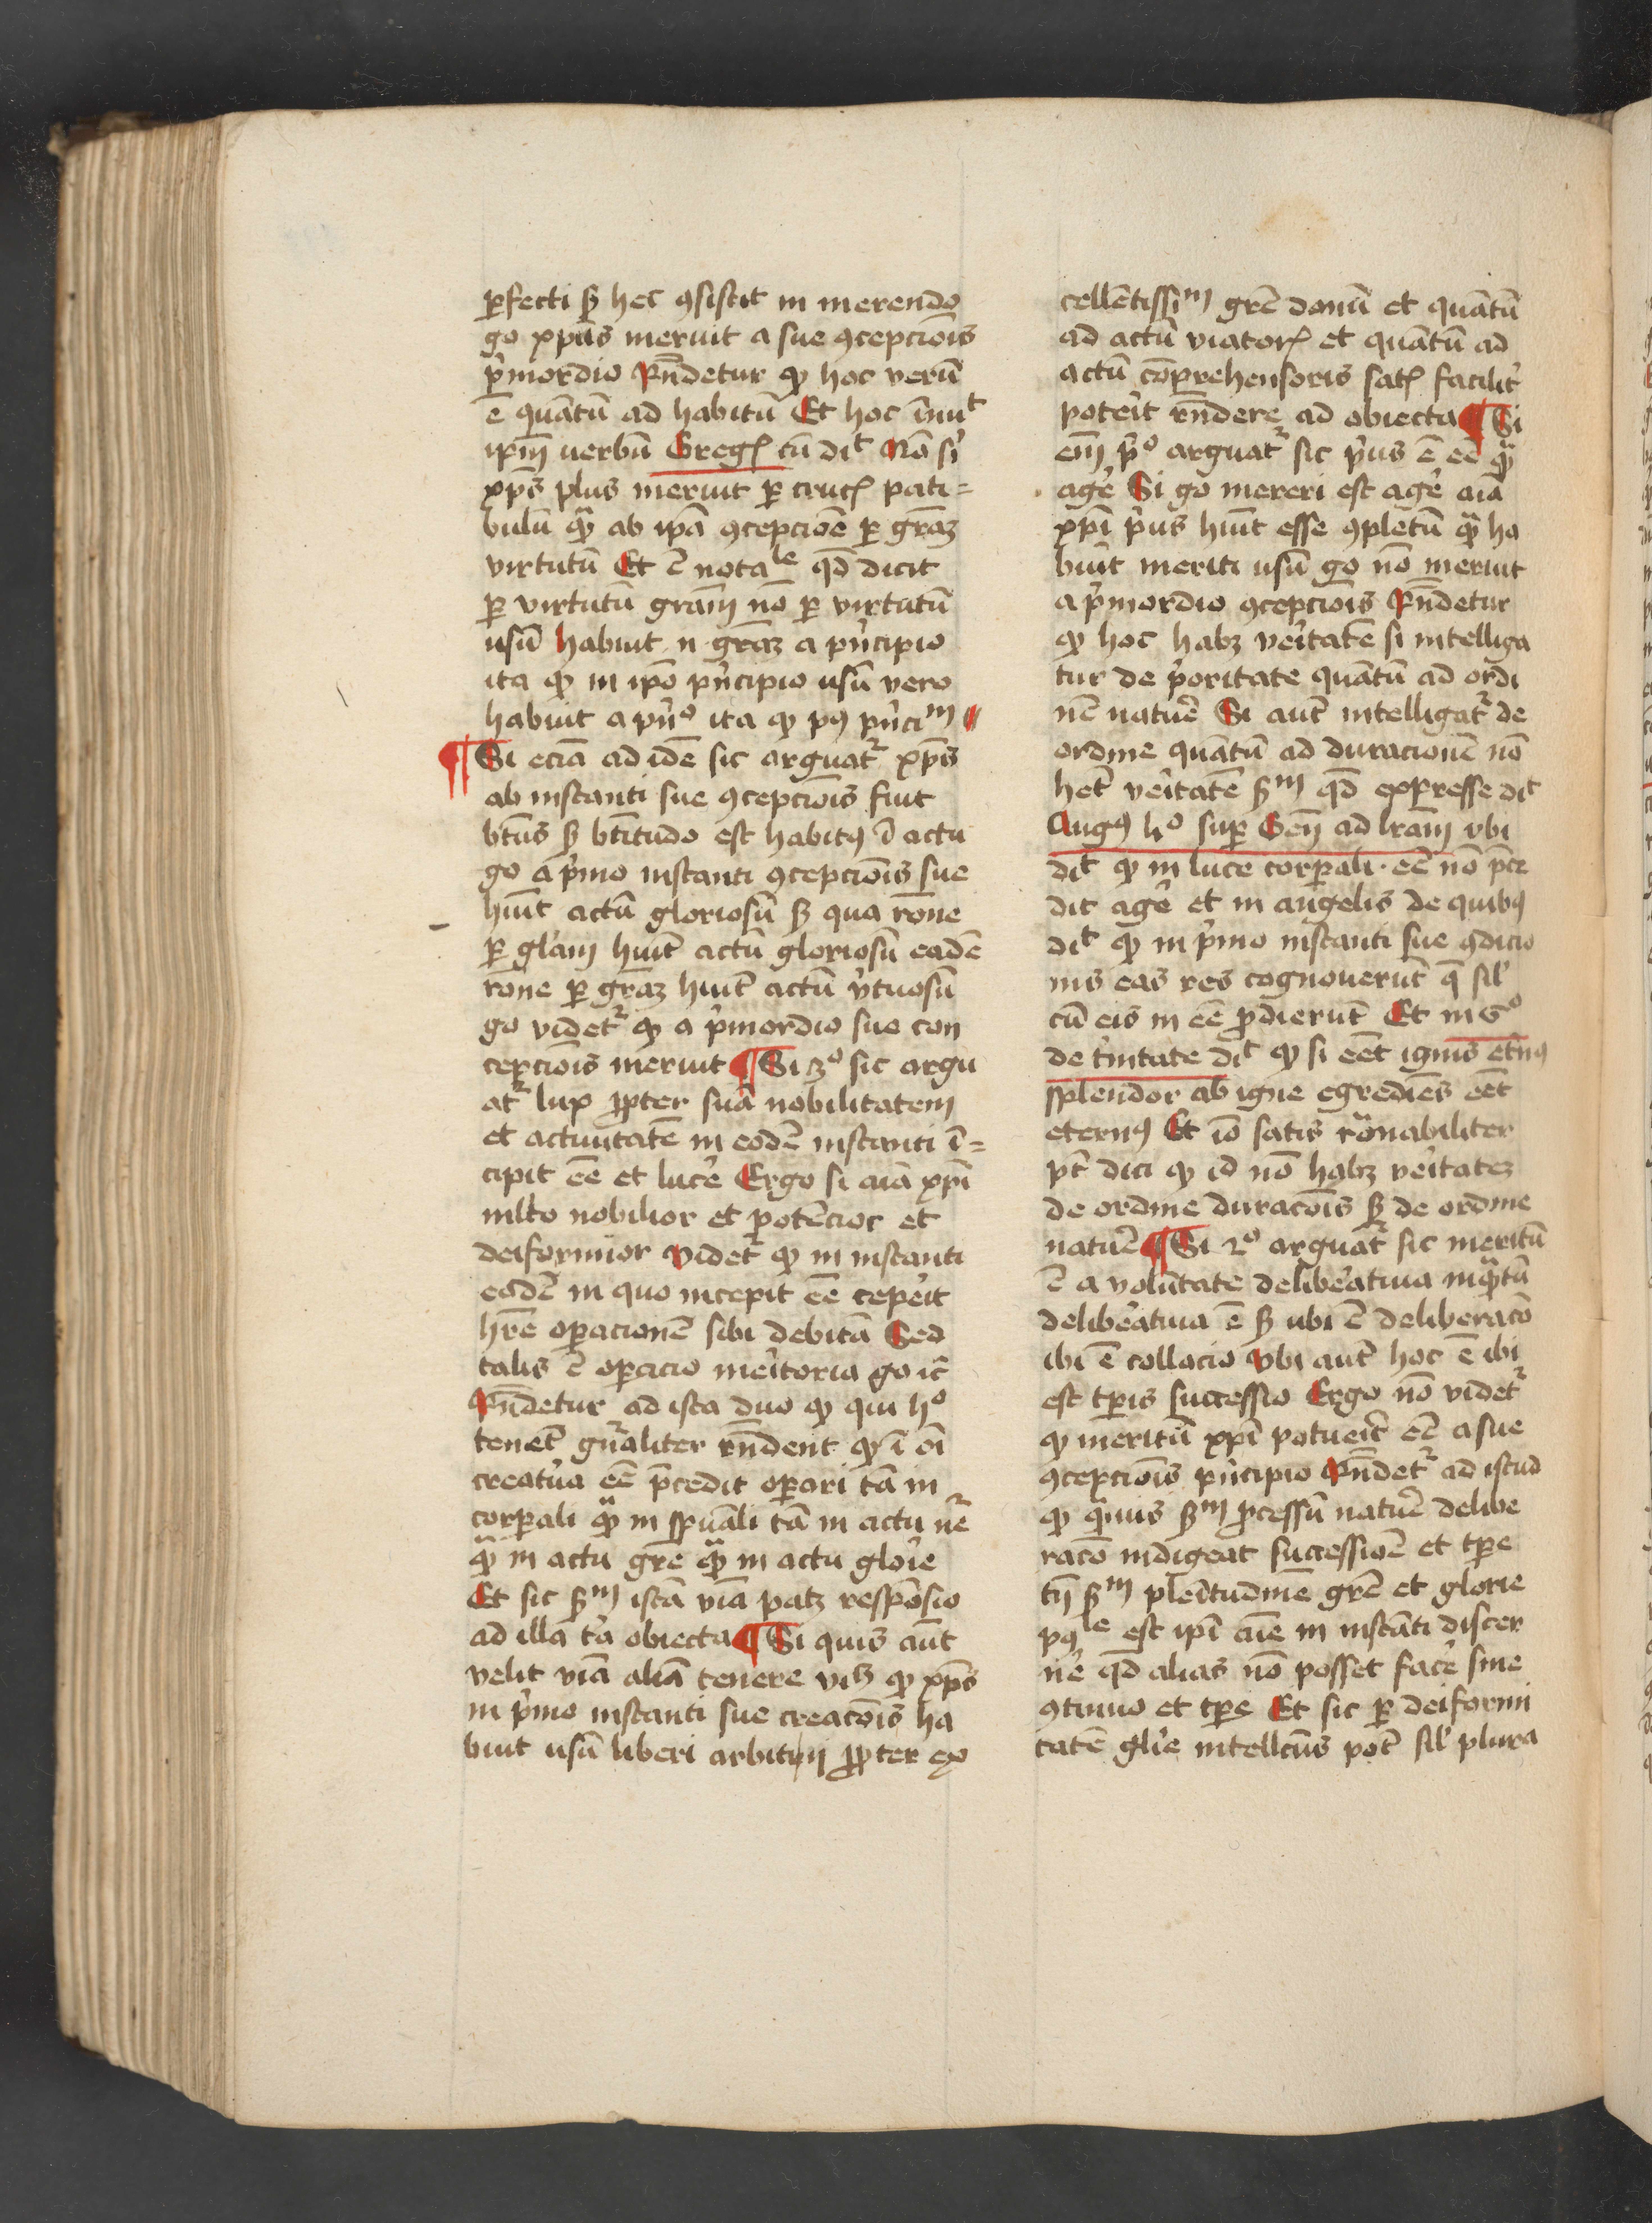 ꝑfecti sꝫ hec ꝯsistit in merendo
go xpūs meruit a sue ꝯcepcio͞is
p'mordio Rn̄detur ꝙ hoc verū
ē quātū ad habitū Et hoc īnuͭ
ip̄m uerbū Greg cū diͭ Nā si
xp̄s plus meruit ꝑ cruc pati=
bulū qͣꝫ ab ipā ꝯcepcionē ꝑ grāꝫ
virtutū Et ē notaˡᵉ qd̄ dicit
ꝑ virtutū grām nō ꝑ virtutū
usū habuit n grāꝫ a p'ncipio
ita ꝙ in ip̄o p'ncipio usū vero
habuit a pn̄ᵒ ita ꝙ pꝰ p'nciᵐ
¶ Si eciā ad idē sic arguat᷑ xp̄s
ab instanti sue ꝯcepcio͞is fuit
bt̄us sꝫ bt̄itudo est habitꝰ ī actu
go a p'mo instanti ꝯcepcio͞is sue
hūit actū gloriosū sꝫ qua rōne
ꝑ gl'am hūit actū gloriosū eadē
rone ꝑ grāꝫ huit actū v'tuosū
go videt᷑ ꝙ a p'mordio sue con
cepcio͞is meruit ¶ Si 3ᵒ sic argu
at᷑ lux ꝓpter suā nobilitatem
et actuutatē in eodē instanti ī=
cipit ēē et luce' Ergo si aīa xp̄i
mlto nobilior et potēcior et
deiformior videt᷑ ꝙ in instanti
eodē in quo incepit ēē cepe'it
hr̄e oꝑacionē sibi debitā Sed
talis ē oꝑacio me'itoria go ic̄
Rn̄detur ad ista duo ꝙ qui hᵒ
tenēt gn̄'aliter rn̄dent ꝙ ī oī
creatu'a ēē p̄cedit oꝑari tā in
corꝑali qͣꝫ in spūali tā in actu nē
qͣꝫ in actu grē qͣꝫ in actu glo'ie
Et sic sꝫᵐ istā viā patꝫ respōsio
ad illa t'a obiecta ¶ Si quis aūt
velit viā aliā tenere vꝫ ꝙ xp̄s
in p'mo instanti sue creacōis ha
buit usū liberi arbitrij ꝓpter ex
cellētissīᵐ grē donū et quātū
ad actū viator et quātū ad
actū cōprehensoris sat facilit'
pote'it rn̄dere ad obiecta ¶ Si
em̄ p'ᵒ arguat᷑ sic p'us ē ēē qͣꝫ
age' Si go mereri est age' aīa
xp̄i p'us hūit esse ꝯpletū qͣꝫ ha
buit meriti usū go nō meruit
a p'mordio ꝯcepcio͞is Rn̄detur
ꝙ hoc habꝫ ve'itatē si intelliga
tur de p'oritate quātū ad ordi
nē natu'e Si aut̄ intelligat᷑ de
ordine quātū ad duracionē nō
het̄ ve'itatē sꝫᵐ qd̄ expresse diͭ
Augꝰ 4ᵒ suꝑ Gen̄ ad lr̄am vbi
diͭ ꝙ in luce corꝑali · ēē nō p̄ce
dit age' et in angelis de quibꝰ
diͭ ꝙ in p'mo instanti sue ꝯdicio
nis eas res cognouerūt q̄ sil'
cū eis in ēē ꝓdierunt Et in 6ᵒ
de t'initate diͭ ꝙ si eēt ignis et'nꝰ
splendor ab igne egrediēs eēt
eternꝰ Et iō satis rōnabiliter
pt̄ dici ꝙ id nō habꝫ ve'itatē
de ordine duracōis sꝫ de ordine
natu'e ¶ Si 2ᵒ arguat᷑ sic meritū
ē a voluntate delibe'atiua inqͣꝫtū
delibe'atiua ē sꝫ ubi ē deliberacō
ibi ē collacio vbi aut̄ hoc ē ibi
est tp̄is successio Ergo nō videt᷑
ꝙ meritū xp̄i potue'it ēē a sue
ꝯcepcio͞is p'ncipio Rn̄det᷑ ad istud
ꝙ qͣꝫuis sꝫᵐ ꝓcessū natu'e delibe
racō indigeat successiōe et tp̄e
tn̄ sꝫᵐ ple'itudinē grē et glorie
pꝰˡᵉ est ip̄i aīe in instāti discer
ne' qd̄ alias nō posset face' sine
ꝯtinuo et tp̄e Et sic ꝑ deiformi
tatē gl'ie intellc̄us pōt sil' plura